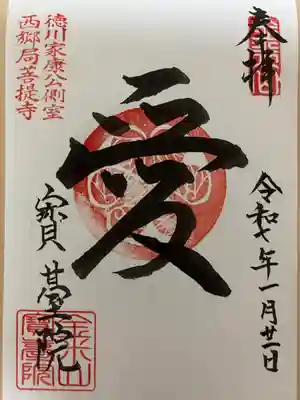 奉拝
令和七年一月廿一日
愛
徳川家康公側室
西郷局菩提寺
寳臺院
金米山
寳臺院